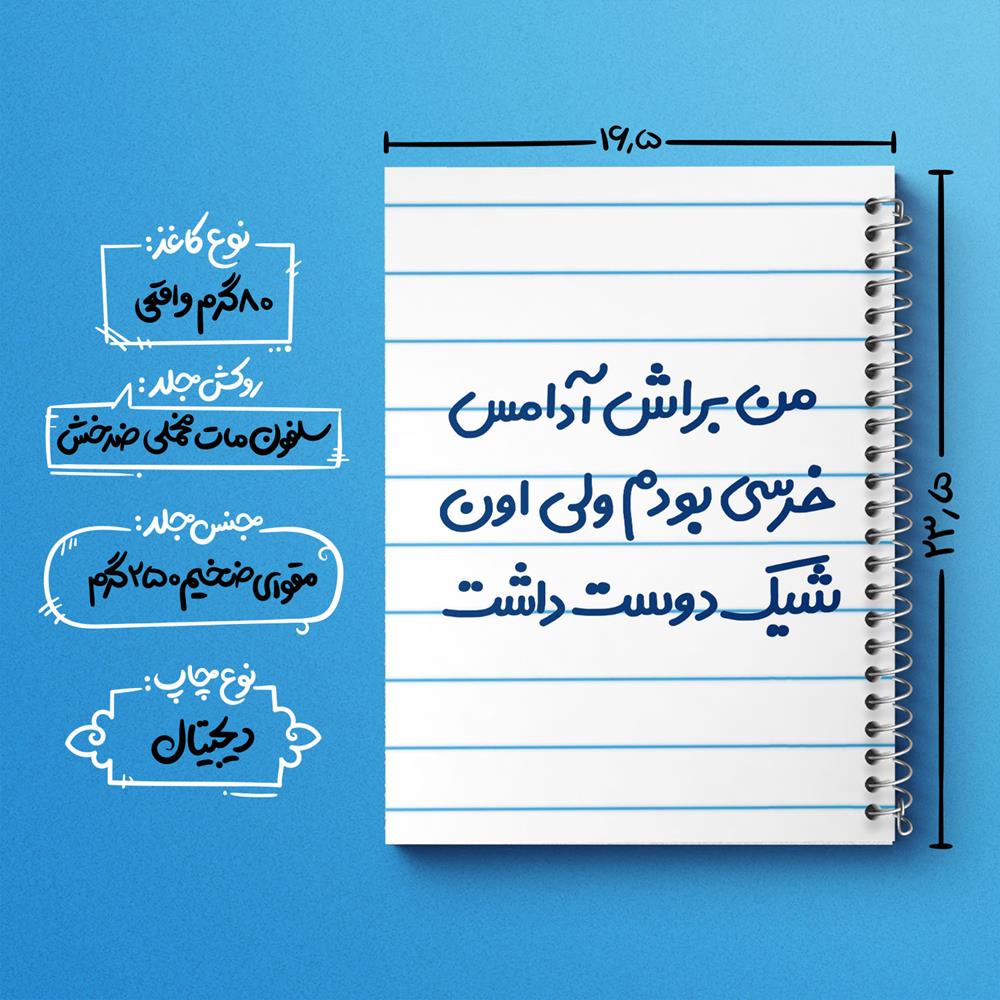 ۱۶٫۵
۲۳٫۵
من براش آدامس
خرسی بودم ولی اون
شیک دوست داشت
نوع کاغذ:
۸۰ گرم واقعی
روکش جلد:
سلفون مات مخملی ضدخش
جنس جلد:
مقوای ضخیم ۲۵۰ گرم
نوع چاپ:
دیجیتال